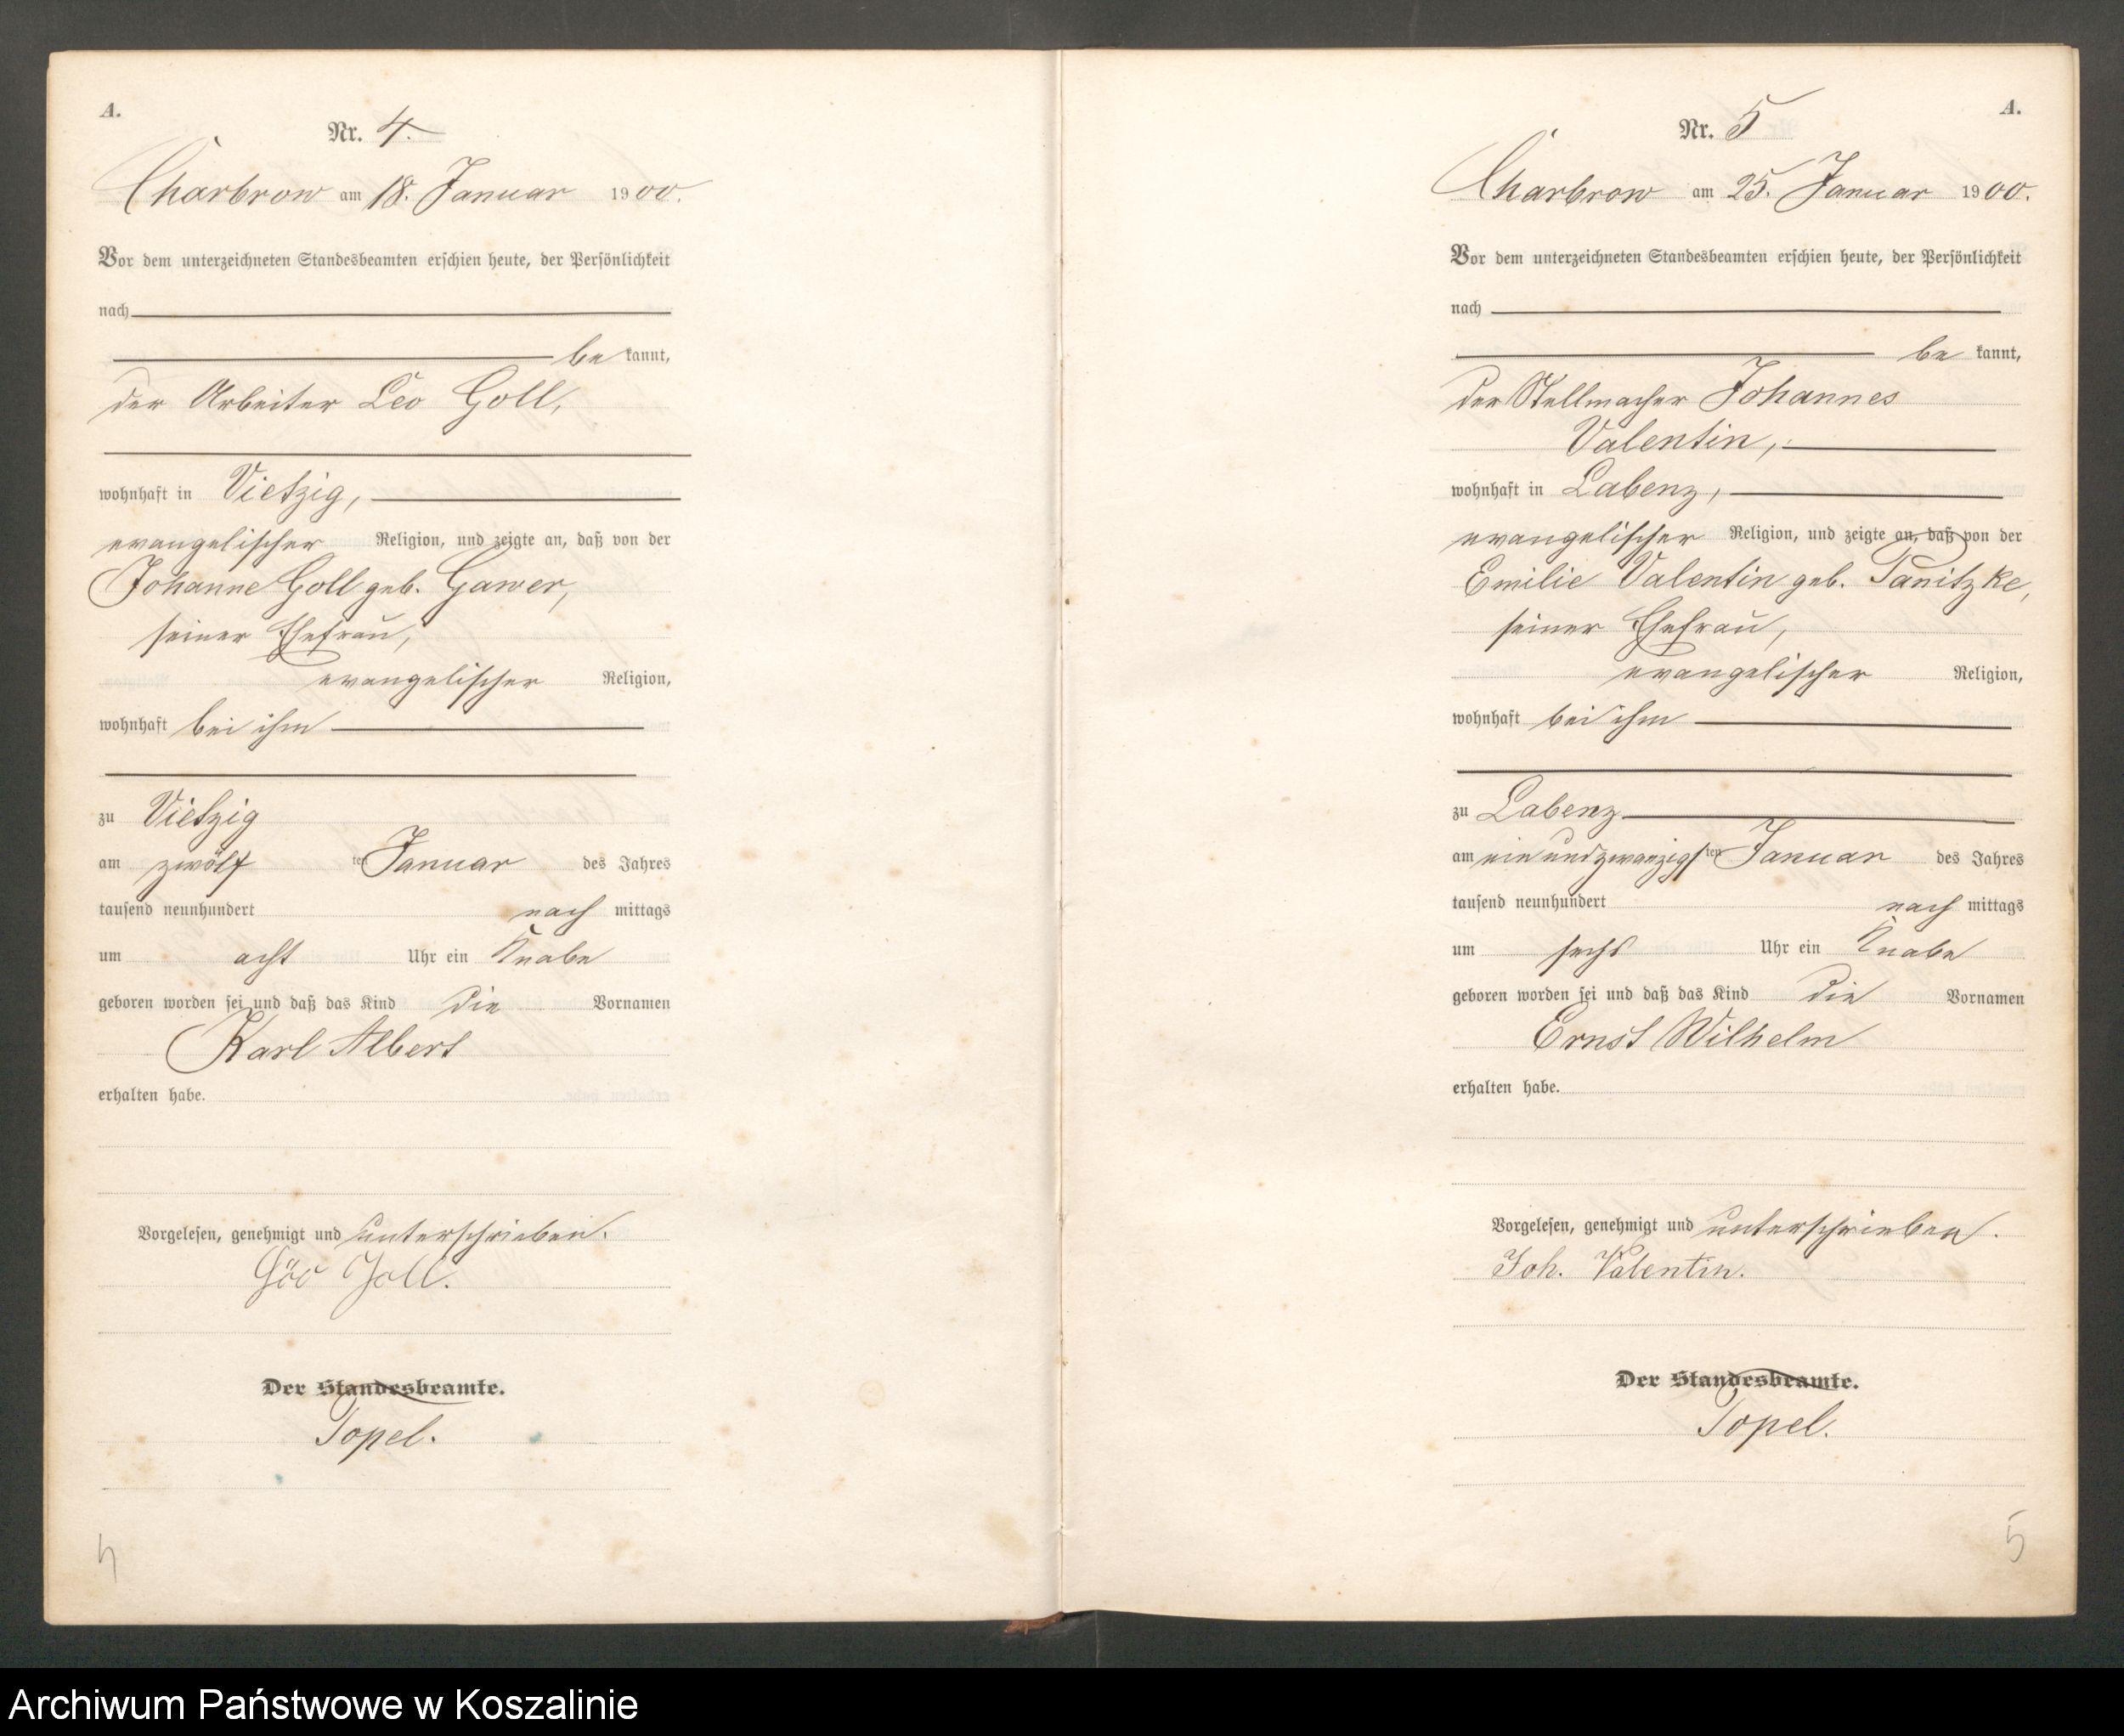 A.
Nr. 4.
Charbrow am 18. Januar 1900.
Vor dem unterzeichneten Standesbeamten erschien heute, der Persönlichkeit
nach
be kannt,
der Arbeiter Leo Goll,
wohnhaft in Vietzig,
evangelischer Religion, und zeigte an, daß von der
Johanne Goll geb. Gawer,
seiner Ehefrau,
evangelischer Religion,
wohnhaft bei ihm
zu Vietzig
am zwölf ten Januar des Jahres
tausend neunhundert nach mittags
um acht Uhr ein Knabe
geboren worden sei und daß das Kind die Vornamen
Karl Albert
erhalten habe.
Vorgelesen, genehmigt und unterschrieben.
Goll.
Der Standesbeamte.
Topel.
4
A.
Nr. 5
Charbrow am 25. Januar 1900.
Vor dem unterzeichneten Standesbeamten erschien heute, der Persönlichkeit
nach
be kannt,
der Stellmacher Johannes
Valentin,
wohnhaft in Labenz,
evangelischer Religion, und zeigte an, daß von der
Emilie Valentin geb. Panitzke,
seiner Ehefrau,
evangelischer Religion,
wohnhaft bei ihm
zu Labenz
am ein und zwanzigsten Januar des Jahres
tausend neunhundert nach mittags
um sechs Uhr ein Knabe
geboren worden sei und daß das Kind die Vornamen
Ernst Wilhelm
erhalten habe.
Vorgelesen, genehmigt und unterschrieben.
Joh. Valentin.
Der Standesbeamte.
Topel.
5
Archiwum Państwowe w Koszalinie